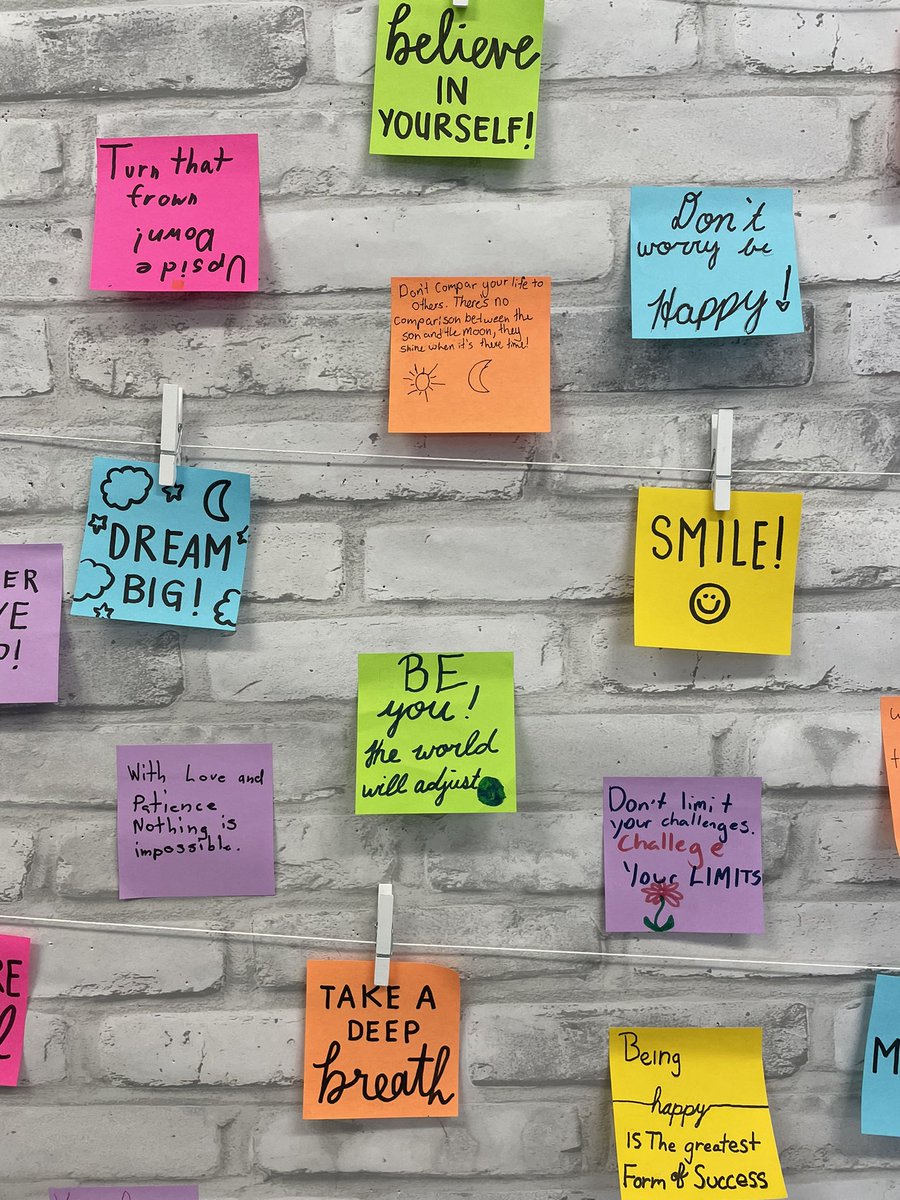 believe
IN
YOURSELF!
Turn that
frown
Upside
Down!
Don't
worry be
Happy!
Don't Compar your life to
Others. There's no
Comparison between the
son and the Moon, they
shine when it's there time!
DREAM
BIG!
SMILE!
ER
VE
O!
BE
you!
the world
will adjust
With Love and
Patience
Nothing is
impossible.
Don't limit
your challenges.
Challege
Your LIMITS
RE
TAKE A
DEEP
breath
Being
happy
IS The greatest
Form of Success
M